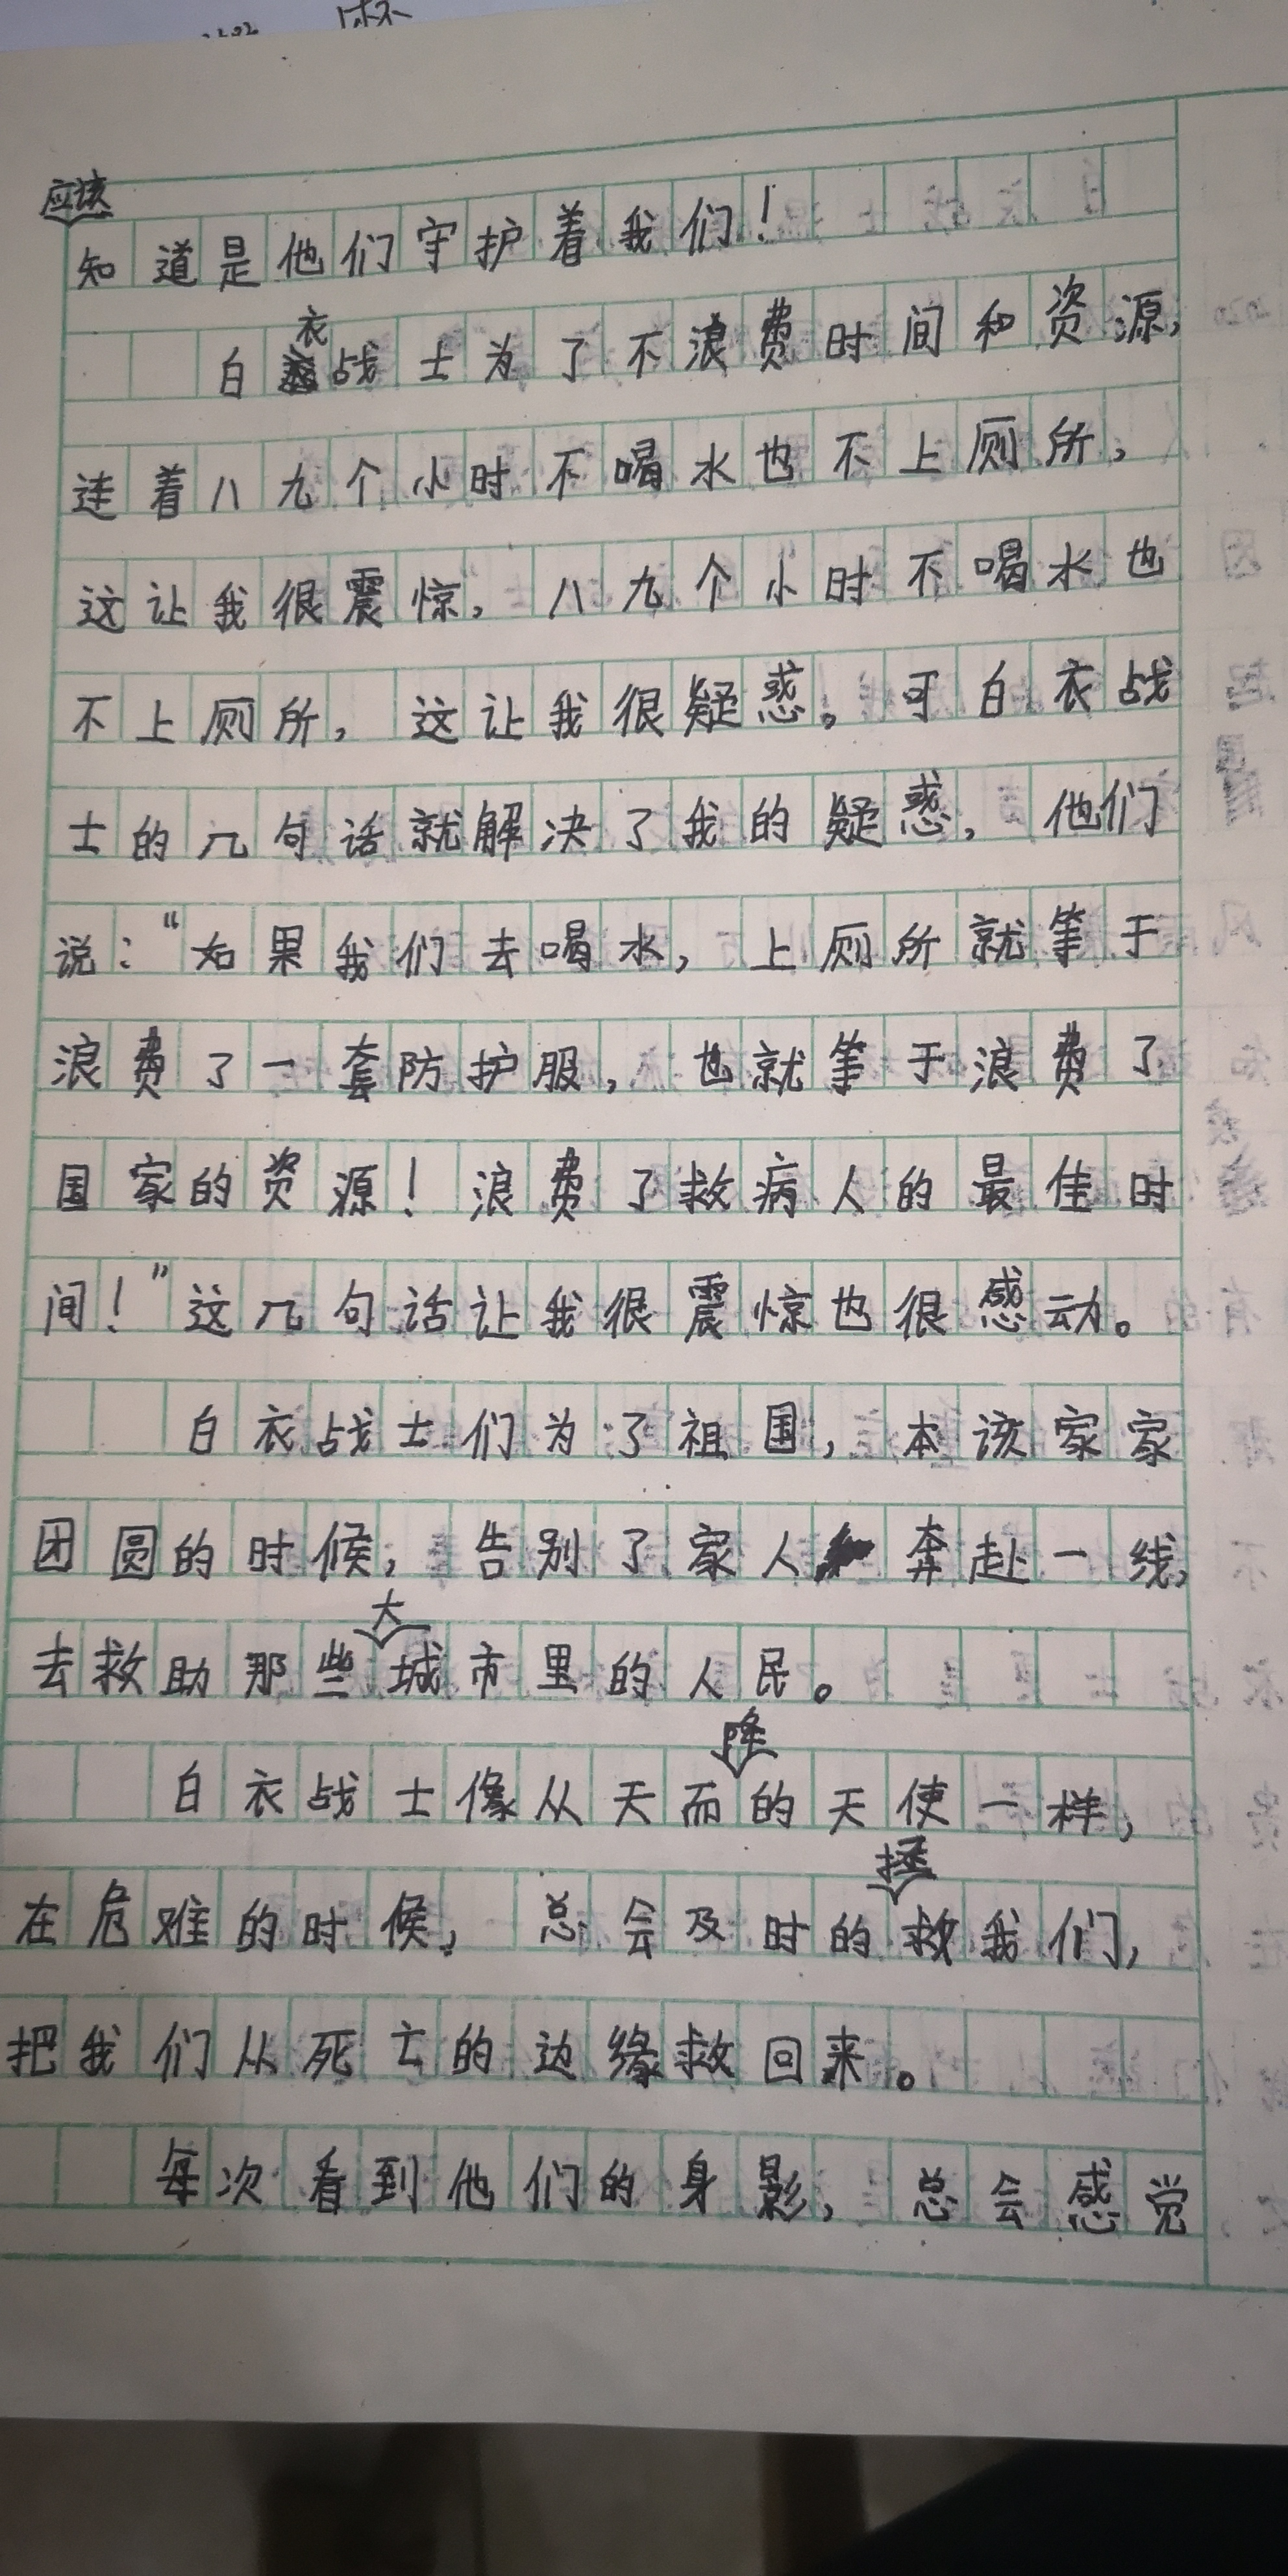 应该知道是他们守护着我们！
白衣战士为了不浪费时间和资源，
连着八九个小时不喝水也不上厕所，
这让我很震惊，八九个小时不喝水也
不上厕所，这让我很疑惑。可白衣战
士的几句话就解决了我的疑惑，他们
说：“如果我们去喝水，上厕所就等于
浪费了一套防护服，也就等于浪费了
国家的资源！浪费了救病人的最佳时
间！”这几句话让我很震惊也很感动。
白衣战士们为了祖国，本该家家
团圆的时候，告别了家人奔赴一线，
去救助那些大城市里的人民。
白衣战士像从天而降的天使一样，
在危难的时候，总会及时的拯救我们，
把我们从死亡的边缘救回来。
每次看到他们的身影，总会感觉